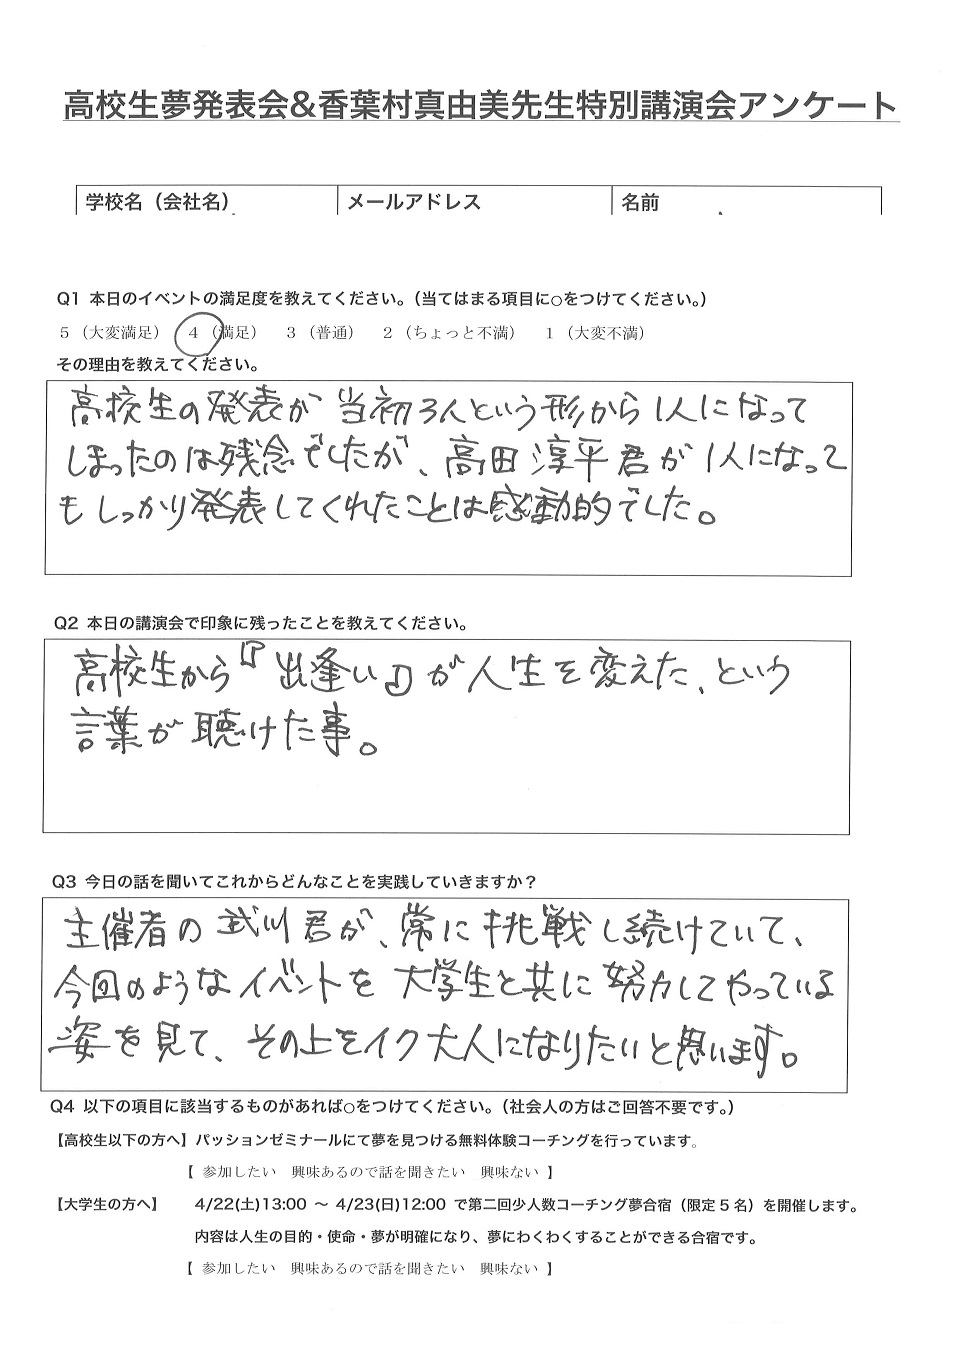 高校生夢発表会&香葉村真由美先生特別講演会アンケート
学校名（会社名） メールアドレス 名前
Q1 本日のイベントの満足度を教えてください。（当てはまる項目に○をつけてください。）
5（大変満足） 4（満足） 3（普通） 2（ちょっと不満） 1（大変不満）
その理由を教えてください。
高校生の発表が当初3人という形から1人になって
しまったのは残念でしたが、高田淳平君が1人になって
もしっかり発表してくれたことは感動的でした。
Q2 本日の講演会で印象に残ったことを教えてください。
高校生から『出逢い』が人生を変えた、という
言葉が聴けた事。
Q3 今日の話を聞いてこれからどんなことを実践していきますか？
主催者の武川君が、常に挑戦し続けていて、
今回のようなイベントを大学生と共に努力してやっている
姿を見て、その上をイク大人になりたいと思います。
Q4 以下の項目に該当するものがあれば○をつけてください。（社会人の方はご回答不要です。）
【高校生以下の方へ】パッションゼミナールにて夢を見つける無料体験コーチングを行っています。
【 参加したい 興味あるので話を聞きたい 興味ない 】
【大学生の方へ】 4/22(土)13:00 ～ 4/23(日)12:00 で第二回少人数コーチング夢合宿（限定5名）を開催します。
内容は人生の目的・使命・夢が明確になり、夢にわくわくすることができる合宿です。
【 参加したい 興味あるので話を聞きたい 興味ない 】